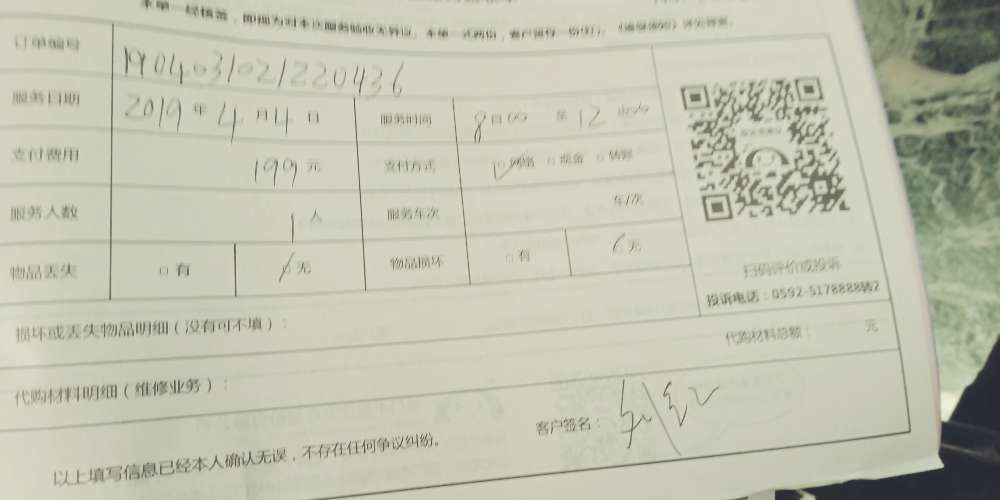 本单一经签署，即视为对本次服务验收无异议。本单一式两份，客户留存一份
订单编号 1904031021220436
服务日期 2019年4月4日 服务时间 8点00至12点
支付费用 199元 支付方式 网络 现金 转账
服务人数 1人 服务车次 车/次
物品丢失 有 无 物品损坏 有 无
扫码评价或投诉
投诉电话：0592-5178888转2
损坏或丢失物品明细（没有可不填）：
代购材料总额： 元
代购材料明细（维修业务）：
客户签名：
以上填写信息已经本人确认无误，不存在任何争议纠纷。